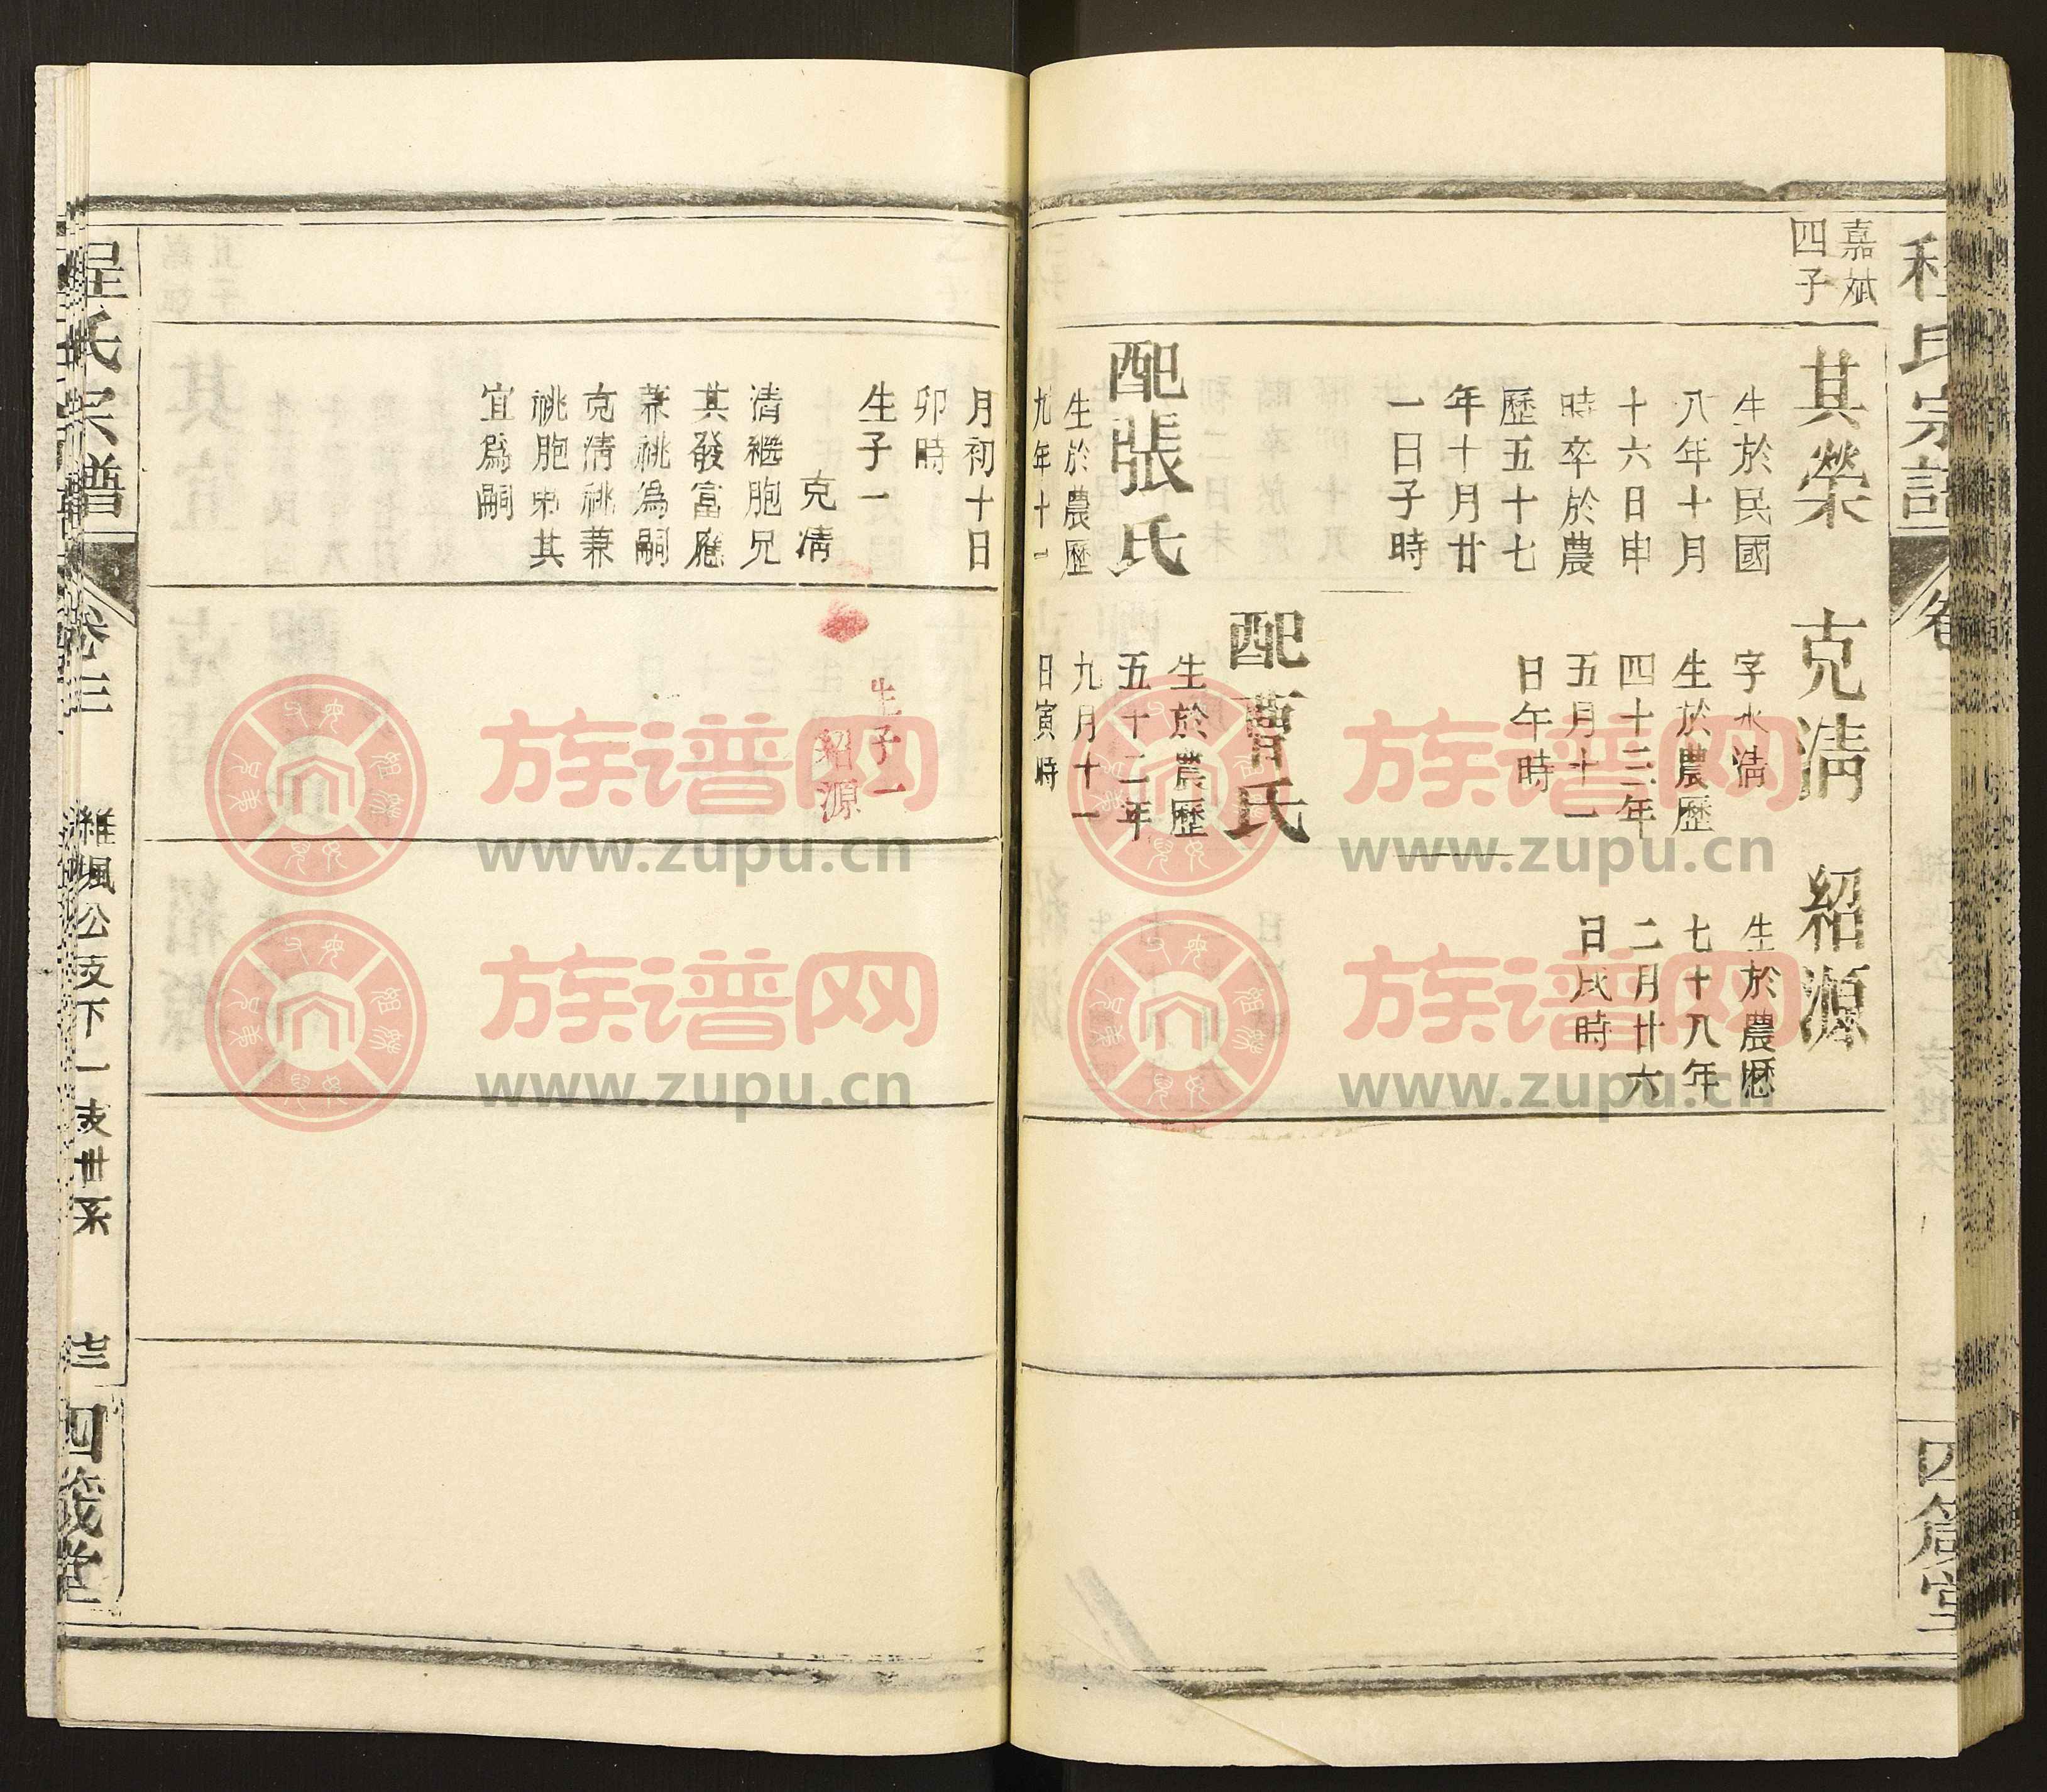 程氏宗譜
卷三
四箴堂
嘉斌
四子
其榮
生於民國
八年十月
十六日申
時卒於農
歷五十七
年十月廿
一日子時
配張氏
生於農歷
九年十一
克清
字水清
生於農歷
四十三年
五月十一
日午時
配曹氏
生於農歷
五十二年
九月十一
日寅時
紹源
生於農歷
七十八年
二月廿六
日戌時
月初十日
卯時
生子一
克清
清繼胞兄
其發富應
兼祧為嗣
克清祧兼
祧胞弟其
宜爲嗣
生子一
紹源
程氏宗譜
卷三
維楓公支下一支世系
四箴堂
族谱网
www.zupu.cn
族谱网
www.zupu.cn
族谱网
www.zupu.cn
族谱网
www.zupu.cn